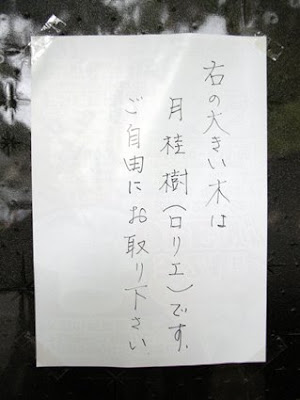 右の大きい木は
月桂樹(ロリエ)です.
ご自由にお取り下さい